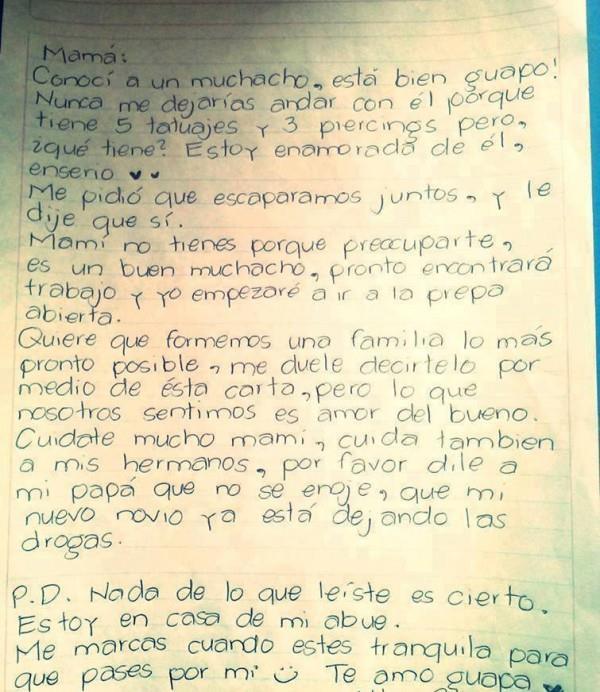 Mamá:
Conocí a un muchacho, está bien guapo!
Nunca me dejarías andar con él porque
tiene 5 tatuajes y 3 piercings pero,
¿qué tiene? Estoy enamorada de él,
enserio ♥♥
Me pidió que escaparamos juntos, y le
dije que sí.
Mamí no tienes porque preocuparte,
es un buen muchacho, pronto encontrará
trabajo y yo empezaré a ir a la prepa
abierta.
Quiere que formemos una familia lo más
pronto posible, me duele decirtelo por
medio de ésta carta, pero lo que
nosotros sentimos es amor del bueno.
Cuidate mucho mami, cuida tambien
a mis hermanos, por favor dile a
mi papá que no se enoje, que mi
nuevo novio ya está dejando las
drogas.
P.D. Nada de lo que leíste es cierto.
Estoy en casa de mi abue.
Me marcas cuando estes tranquila para
que pases por mi ☺ Te amo guapa ♥